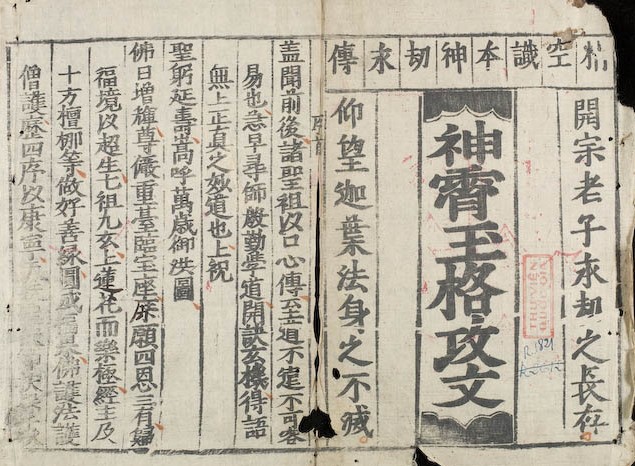 空識本神刼永傳
開宗老子永刼之長存
神霄玉格攻文
仰望迦葉法身之不滅
蓋聞前後諸聖祖以口心傳至道不遠不可容
易也急早尋師殷勤學道開談玄機得語
無上正真之妙道也上祝
聖躬延壽嵩呼萬歲御洪圖
佛日增輝尊嚴重臺臨宝座庶願四恩三有歸
福境以超生七祖九玄上蓮花而樂極經主及
十方檀挪等做好善緣圓成佛護法護
僧護四序以康
R.1821